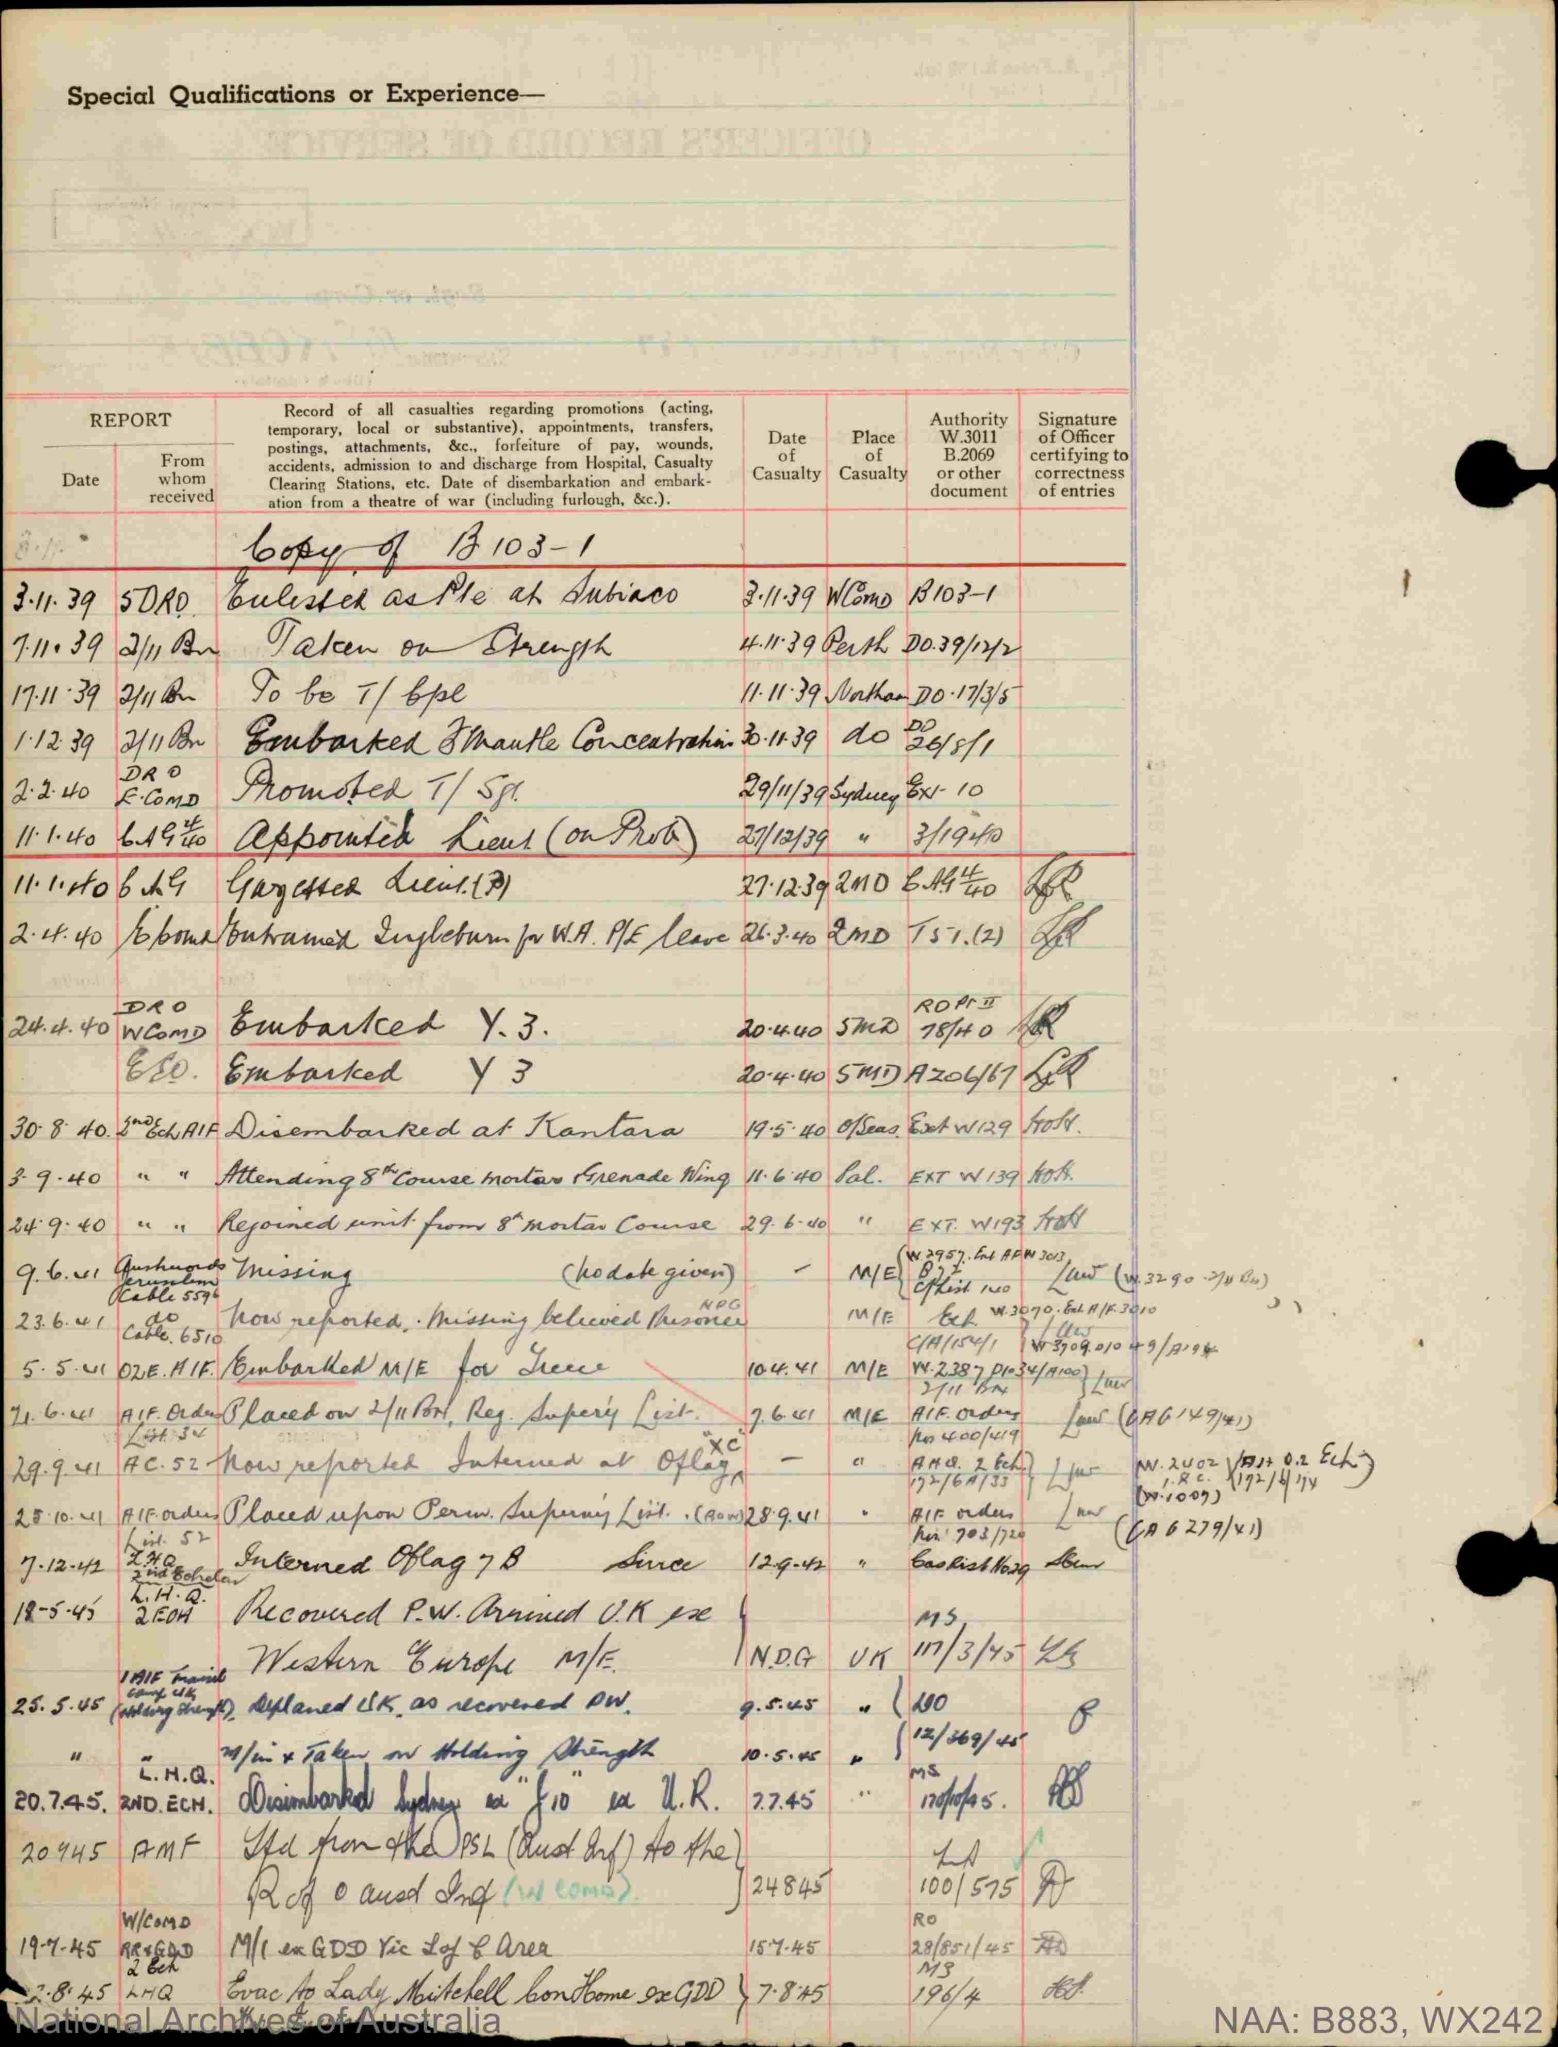 Special Qualifications or Experience—
REPORT
Date
From whom received
Record of all casualties regarding promotions (acting,
temporary, local or substantive), appointments, transfers,
postings, attachments, &c., forfeiture of pay, wounds,
accidents, admission to and discharge from Hospital, Casualty
Clearing Stations, etc. Date of disembarkation and embark-
ation from a theatre of war (including furlough, &c.).
Date of Casualty
Place of Casualty
Authority W.3011 B.2069 or other document
Signature of Officer certifying to correctness of entries
Copy of B103-1
3.11.39 5DRO. Enlisted as Pte at Subiaco 3.11.39 WComd B103-1
7.11.39 2/11 Bn Taken on Strength 4.11.39 Perth DO.39/12/2
17.11.39 2/11 Bn To be T/Cpl 11.11.39 Northam DO.17/3/5
1.12.39 2/11 Bn Embarked F'Mantle Concentration 30.11.39 do DO 26/8/1
DRO
2.2.40 E.COMD Promoted T/Sgt. 29/11/39 Sydney Ext-10
11.1.40 CAG 4/40 Appointed Lieut (on Prob) 27/12/39 " 3/1940
11.1.40 CAG Gazetted Lieut.(P) 27.12.39 2MD CAG 4/40
2.4.40 E Comd Entrained Ingleburn for W.A. P/E leave 26.3.40 2MD T51.(2)
DRO ROPt II
24.4.40 WCOMD Embarked Y.3. 20.4.40 5MD 78/40
Embarked Y3 20.4.40 5MD A206/67
30.8.40. 2nd Ech AIF Disembarked at Kantara 19.5.40 O/Seas. Ext W129
3.9.40 " " Attending 8th Course Mortar Grenade Wing 11.6.40 Pal. EXT W139
24.9.40 " " Rejoined unit from 8th Mortar Course 29.6.40 " EXT. W193
9.6.41 Jerusalem Cable 5596 Missing (No date given) – M/E (W.3290 2/11 Bn)
23.6.41 do Cable. 6510 Now reported. Missing believed Prisoner M/E
C/A/154/1
5.5.41 O2E. AIF. Embarked M/E for Greece 10.4.41 M/E W.2387
2/11 Bn
21.6.41 AIF. Orders Placed on 2/11 Bn, Reg. Supery List. 7.6.41 M/E AIF. Orders (CAG 149/41)
List. 34 No 400/419
29.9.41 AC.52 Now reported Interned at Oflag "XC" – " 2 Ech W.2402
(W.1009)
28.10.41 AIF orders Placed upon Perm. Supery List. (POW) 28.9.41 " AIF orders
List. 52 703/720 (CAG 279/41)
7.12.42 LHQ 2nd Echelon Interned Oflag 7B Since 12.9.42 " Cas List No 29
L.H.Q.
18-5-45 2ECH Recovered P.W. Arrived U.K exe
MS
Western Europe M/E. N.D.G UK 111/3/45
25.5.45 (Holding Strength) Deplaned UK. as recovered PW. 9.5.45 " 200
" " M/in & Taken on Holding Strength 10.5.45 " 12/369/45
L.H.Q. MS
20.7.45. 2ND.ECH. Disembarked Sydney ex "J10" ex U.K. 7.7.45 " 120/10/45.
20945 AMF Tfd from the PSL (Aust Inf) to the
R of O Aust Inf (W Comd). 24845 100/575
W/COMD RO
19-7-45 RR&GDD M/I ex GDD Vic L of C Area 15.7.45 28/851/45
2 Ech MS
2.8.45 LHQ Evac to Lady Mitchell Con Home ex GDD 7.8.45 196/4
National Archives of Australia
NAA: B883, WX242